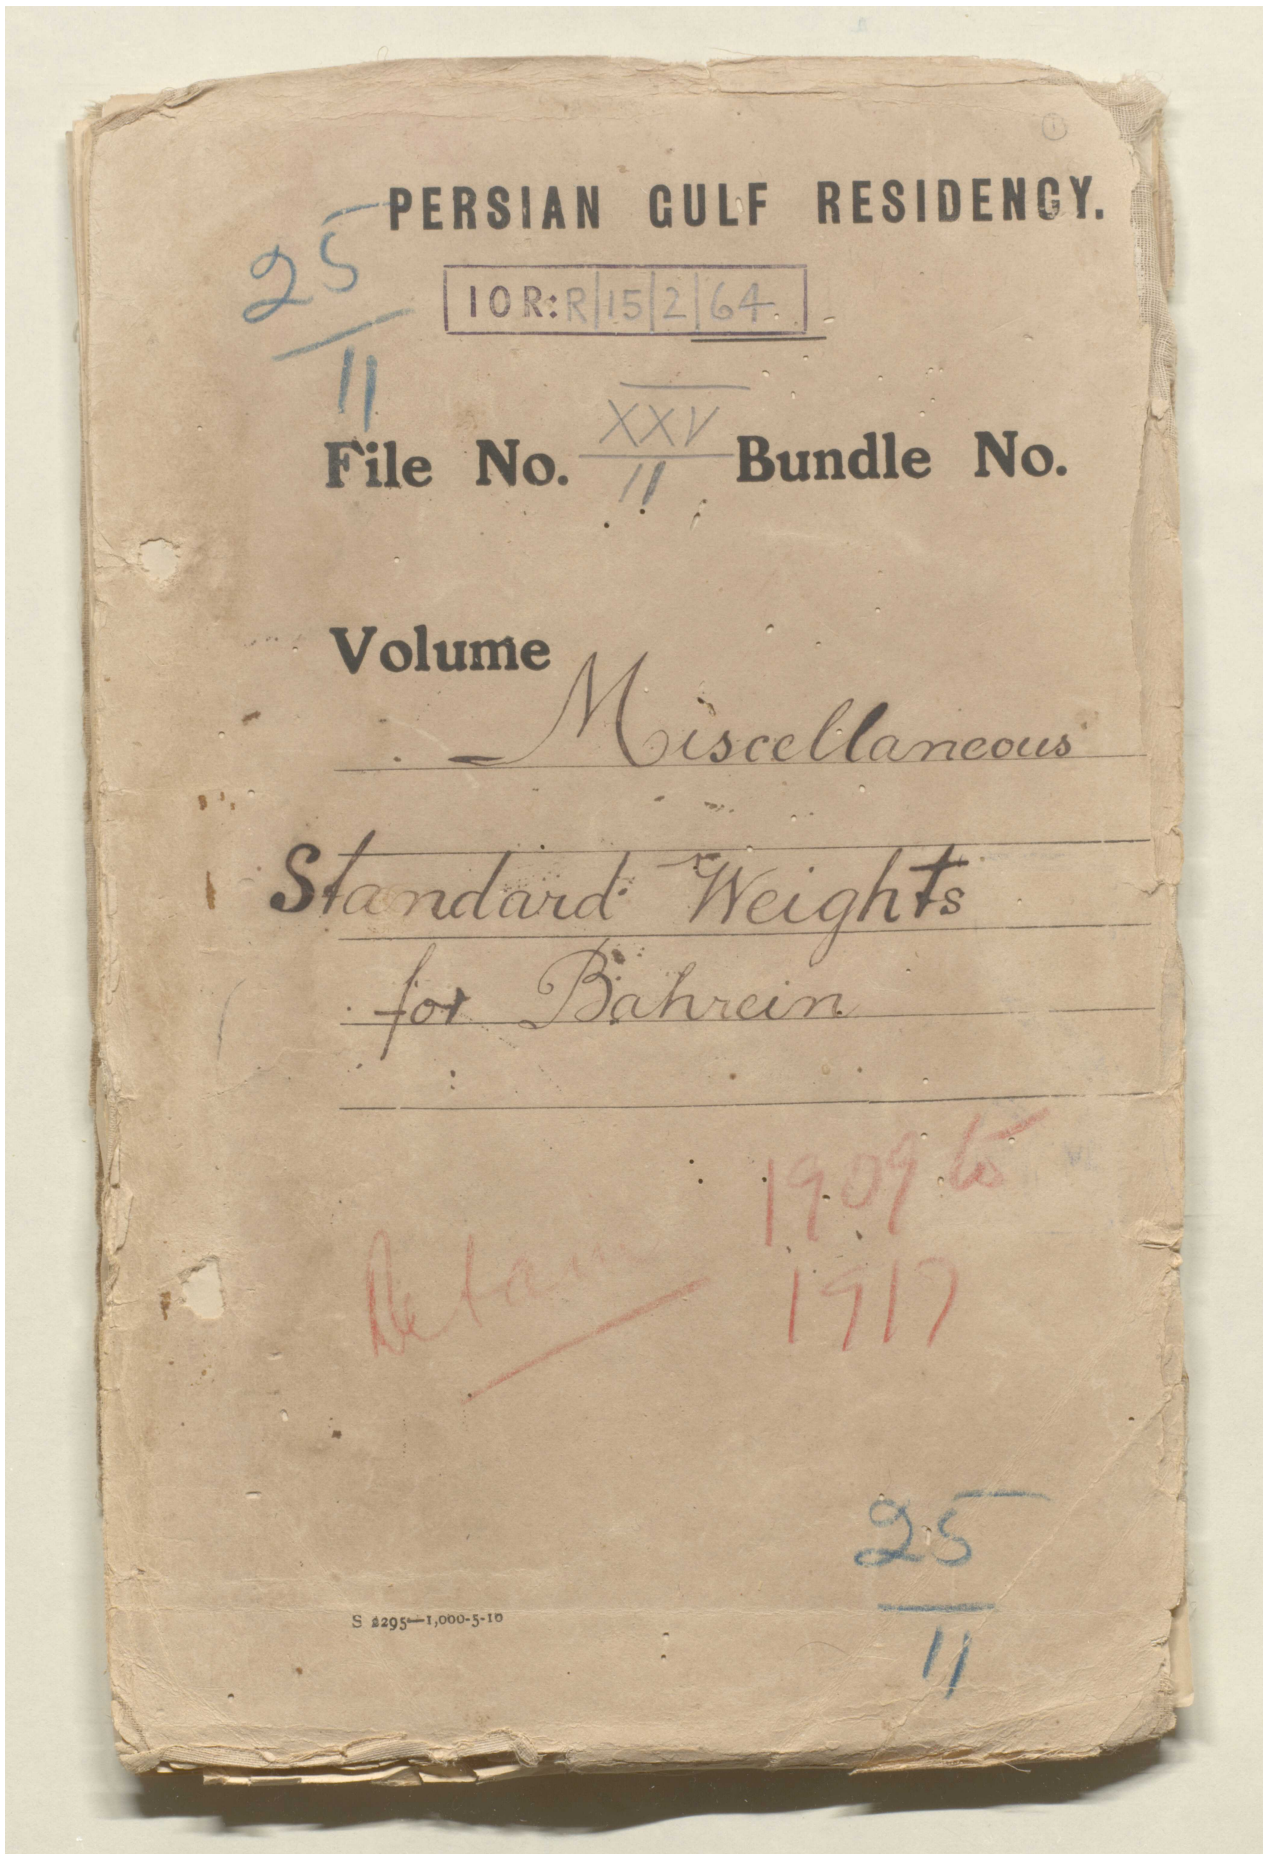 1
PERSIAN GULF RESIDENCY.
25
11
IOR: R/15/2/64.
File No. XXV Bundle No.
11
Volume
Miscellaneous
Standard Weights
for Bahrein
1909 to
1917
Retain
25
11
S 2295—1,000-5-10